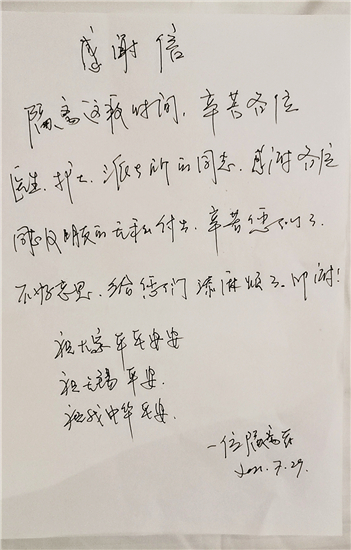 感谢信
隔离这段时间，辛苦各位
医生、护士、派出所的同志，感谢各位
同志及朋友的无私付出，辛苦您们了
不好意思，给您们添麻烦了。叩谢！
祝大家平平安安
祝无锡平安.
祝我中华平安.
一位隔离者
2021.7.29.